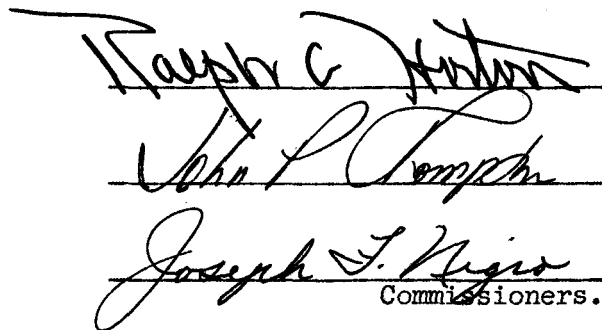 Ralph C Horton
John P
Joseph F. Nigro
Commissioners.